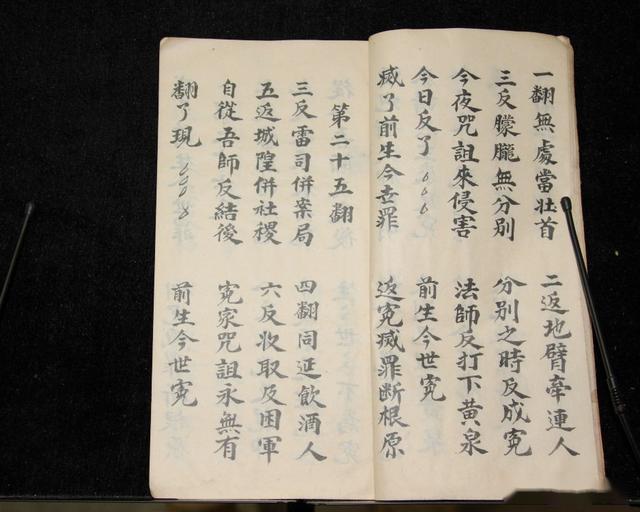 一翻無處當壯首 二返地臂牽連人
三反朦朧無分別 分別之時反成寃
今夜咒詛來侵害 法師反打下黃泉
今日反了 前生今世寃
滅了前生今世罪 返寃滅罪断根原
第二十五翻
三反雷司併案局 四翻同延飲酒人
五返城隍併社稷 六反收取及困軍
自從吾師反結後 寃家咒詛永無有
翻了現 前生今世寃